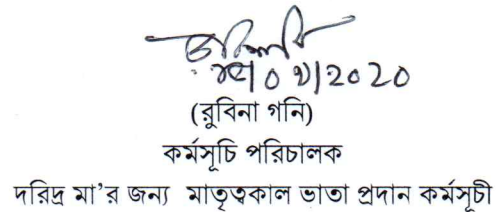 (রুবিনা গনি)
কর্মসূচি পরিচালক
দরিদ্র মা'র জন্য মাতৃত্বকাল ভাতা প্রদান কর্মসূচী